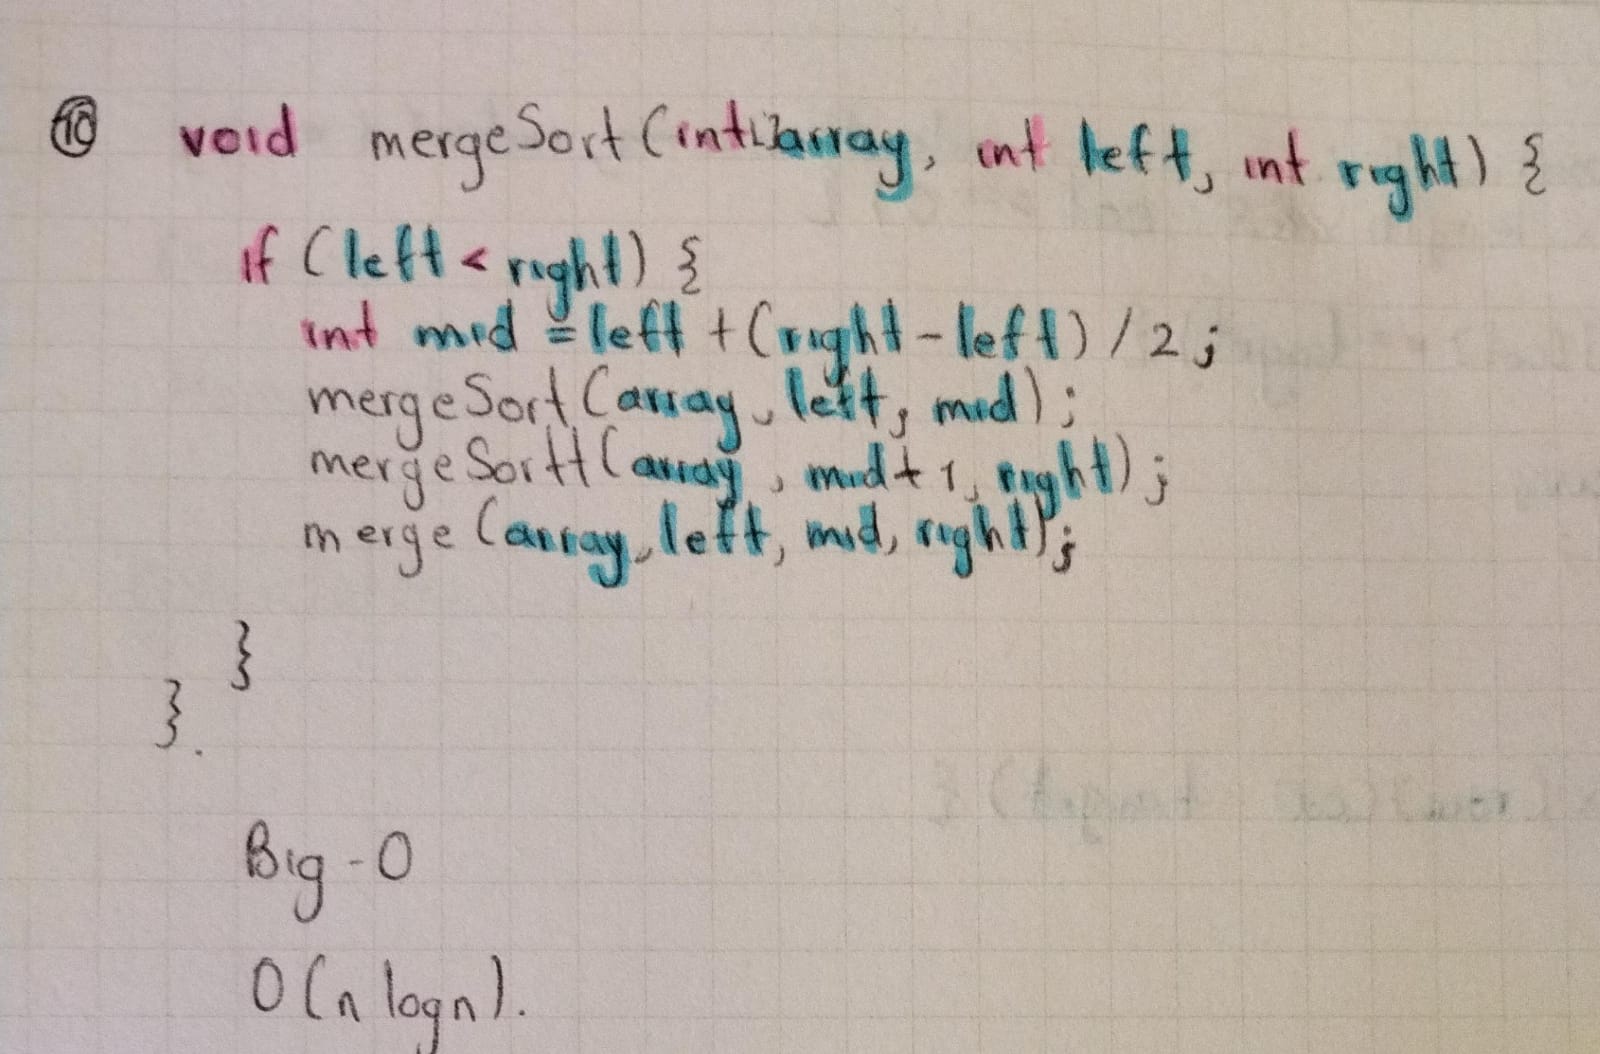 10 void mergeSort(int[] array, int left, int right) {
if (left < right) {
int mid = left + (right - left) / 2;
mergeSort(array, left, mid);
mergeSortt(array, mid + 1, right);
merge(array, left, mid, right);
}
}.
Big-O
O(n logn).